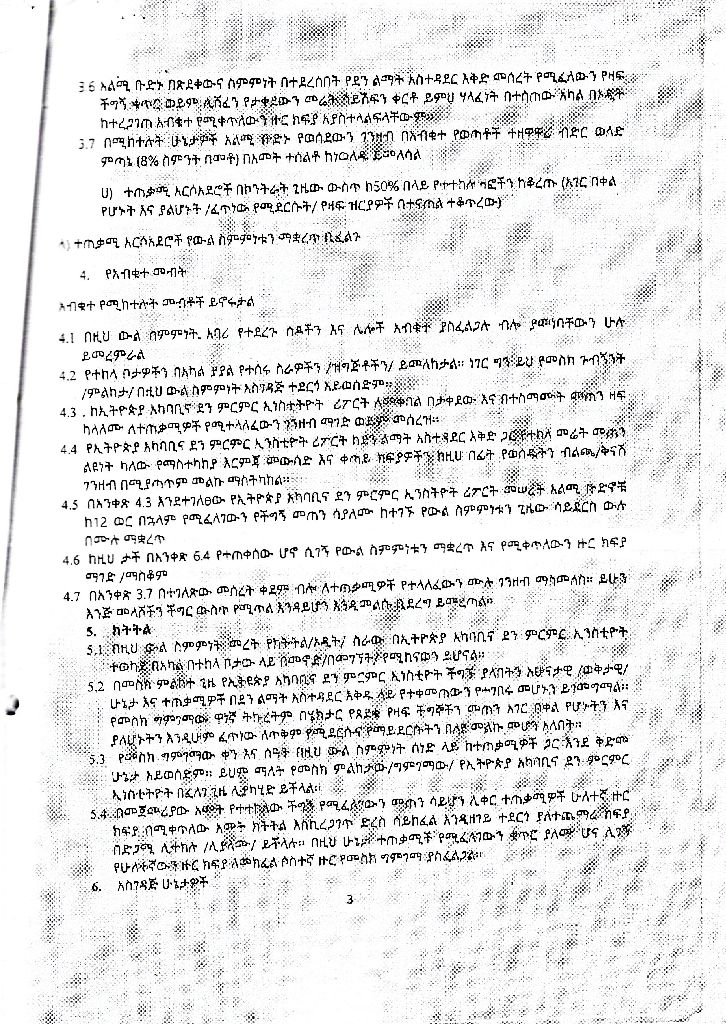 3.6 አልሚ ቡድኑ በጽደቀውና ስምምነት በተደረሰበት የደን ልማት አስተዳደር እቅድ መሰረት የሚፈለውን የዛፍ
ችግኝ ቁጥር ወይም ሊሸፈን የታቀደውን መሬት ሳይሸፍን ቀርቶ ይምህ ሃላፊነት በተሰጠው አካል በኦዲት
ከተረጋገጠ አብቁተ የሚቀጥለውን ዙር ክፍያ አያስተላልፍላቸውም።
3.7 በሚከተሉት ሁኔታዎች አልሚ ቡድኑ የወሰደውን ገንዘብ በአብቁተ የወጣቶች ተዘዋዋሪ ብድር ወለድ
ምጣኔ (8% ስምንት በመቶ) በአመት ተሰልቶ ከነወለዱ ይመለሳል
ሀ) ተጠቃሚ አርሶአደሮች በኮንትራት ጊዜው ውስጥ ከ50% በላይ የተተከሉ ዛፎችን ከቆረጡ (አገር በቀል
የሆኑት እና ያልሆኑት /ፈጥነው የሚደርሱት/ የዛፍ ዝርያዎች በተናጠል ተቆጥረው)
ተጠቃሚ አርሶአደሮች የውል ስምምነቱን ማቋረጥ ቢፈልጉ
4. የአብቁተ መብት
አብቁተ የሚከተሉት መብቶች ይኖሩታል
4.1 በዚህ ውል ስምምነት አባሪ የተደረጉ ሰዶችን እና ሌሎች አብቁተ ያስፈልጋሉ ብሎ ያመነባቸውን ሁሉ
ይመረምራል
4.2 የተከላ ቦታዎችን በአካል ያያል የተሰሩ ስራዎችን /ዝግጅቶችን/ ይመለከታል። ነገር ግን ይህ የመስክ ጉብኝንት
/ምልከታ/ በዚህ ውል ስምምነት አስገዳጅ ተደርጎ አይወሰድም።
4.3 . ከኢትዮጵያ አካባቢና ደን ምርምር ኢንስቲትዮት ሪፖርት ለመቀበል በታቀደው እና በተስማሙት መጠን ዛፍ
ካላለሙ ለተጠቃሚዎች የሚተላለፈውን ገንዘብ ማገድ ወይም መሰረዝ።
4.4 የኢትዮጵያ አካባቢና ደን ምርምር ኢንስቲዮት ሪፖርት ከደን ልማት አስተዳደር እቅድ ጋር የተከለ መሬት መጠን
ልዩነት ካለው የማስተካከያ እርምጃ መውሰድ እና ቀጣይ ክፍያዎችን ከዚህ በፊት የወሰዱትን ብልጫ/ቅናሽ
ገንዘብ በሚያጣጥም መልኩ ማስትካከል።
4.5 በአንቀጽ 4.3 እንደተገለፀው የኢትዮጵያ አካባቢና ደን ምርምር ኢንስትዮት ሪፖርት መሠረት አልሚ ቡድኖቹ
ከ12 ወር በኋላም የሚፈለገውን የችግኝ መጠን ሳያለሙ ከተገኙ የውል ስምምነቱን ጊዜው ሳይደርስ ውሉ
በሙሉ ማቋረጥ
4.6 ከዚህ ታች በአንቀጽ 6.4 የተጠቀሰው ሆኖ ሲገኝ የውል ስምምነቱን ማቋረጥ እና የሚቀጥለውን ዙር ክፍያ
ማገድ /ማስቆም
4.7 በአንቀጽ 3.7 በተገለጽው መሰረት ቀደም ብሎ ለተጠቃሚዎች የተላለፈውን ሙሉ ገንዘብ ማስመለስ። ይሁን
እንጅ መላሾችን ችግር ውስጥ የሚጥል እንዳይሆን እንዲመልሱ ቢደረግ ይመረጣል።
5. ክትትል
5.1 በዚህ ውል ስምምነት መረት የክትትል/ኦዲት/ ስራው በኢትዮጵያ አካባቢና ደን ምርምር ኢንስቲዮት
ተወካይ በአካል በተከላ ቦታው ላይ በመኖድ/በመገኘት/ የሚከናወን ይሆናል።
5.2 በመስክ ምልከታ ጊዜ የኢትዩጵያ አካባቢና ደን ምርምር ኢንስቲዮት ችግኙ ያለበትን አሁናታዊ /ወቅታዊ/
ሁኔታ እና ተጠቃሚዎች በደን ልማት አስተዳደር እቅዱ ላይ የተቀመጠውን የተገበሩ መሆኑን ይገመግማል።
የመስክ ግምገማው ዋነኛ ትኩረትም በሄክታር የጸደቁ የዛፍ ችግኞችን መጠን አገር በቀል የሆኑትን እና
ያለሆኑትን እንዲሁም ፈጥነው ለጥቅም የሚደርሱና የማይደርሱትን በለየ መልኩ መሆን አለበት።
5.3 የመስክ ግምገማው ቀን እና ሰዓት በዚህ ውል ስምምነት ሰነድ ላይ ከተጠቃሚዎች ጋር እንደ ቅድመ
ሁኔታ አይወሰድም። ይህም ማለት የመስክ ምልከታው/ግምገማው/ የኢትዮጵያ አካባቢና ደን ምርምር
ኢነስቲትዮት በፈለገ ጊዜ ሊያካሂድ ይችላል።
5.4 በመጀመሪያው አመት የተተከለው ችግኝ የሚፈለገውን መጠን ሳይሆን ሊቀር ተጠቃሚዎች ሁለተኛ ዙር
ክፍያ በሚቀጥለው አመት ክትትል እስኪረጋገጥ ድረስ ሳይከፈል እንዲዘገይ ተደርጎ ያለተጨማሪ ክፍያ
በድጋሚ ሊተክሉ /ሊያለሙ/ ይችላሉ። በዚህ ሁኔታ ተጠቃሚች የሚፈለገውን ቁጥር ያለሙ ሆና ሲገኝ
የሁለተኛውን ዙር ክፍያ ለመክፈል ሶስተኛ ዙር የመስክ ግምገማ ያስፈልጋል።
6. አስገዳጅ ሁኔታዎች
3